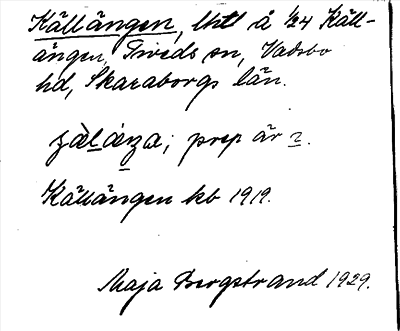 Källängen, lht å 1/24 Käll-
ängen, Tiveds sn, Vadsbo
hd, Skaraborgs län.
prep är
Källängen kb 1919.
Maja Bergstrand 1929.